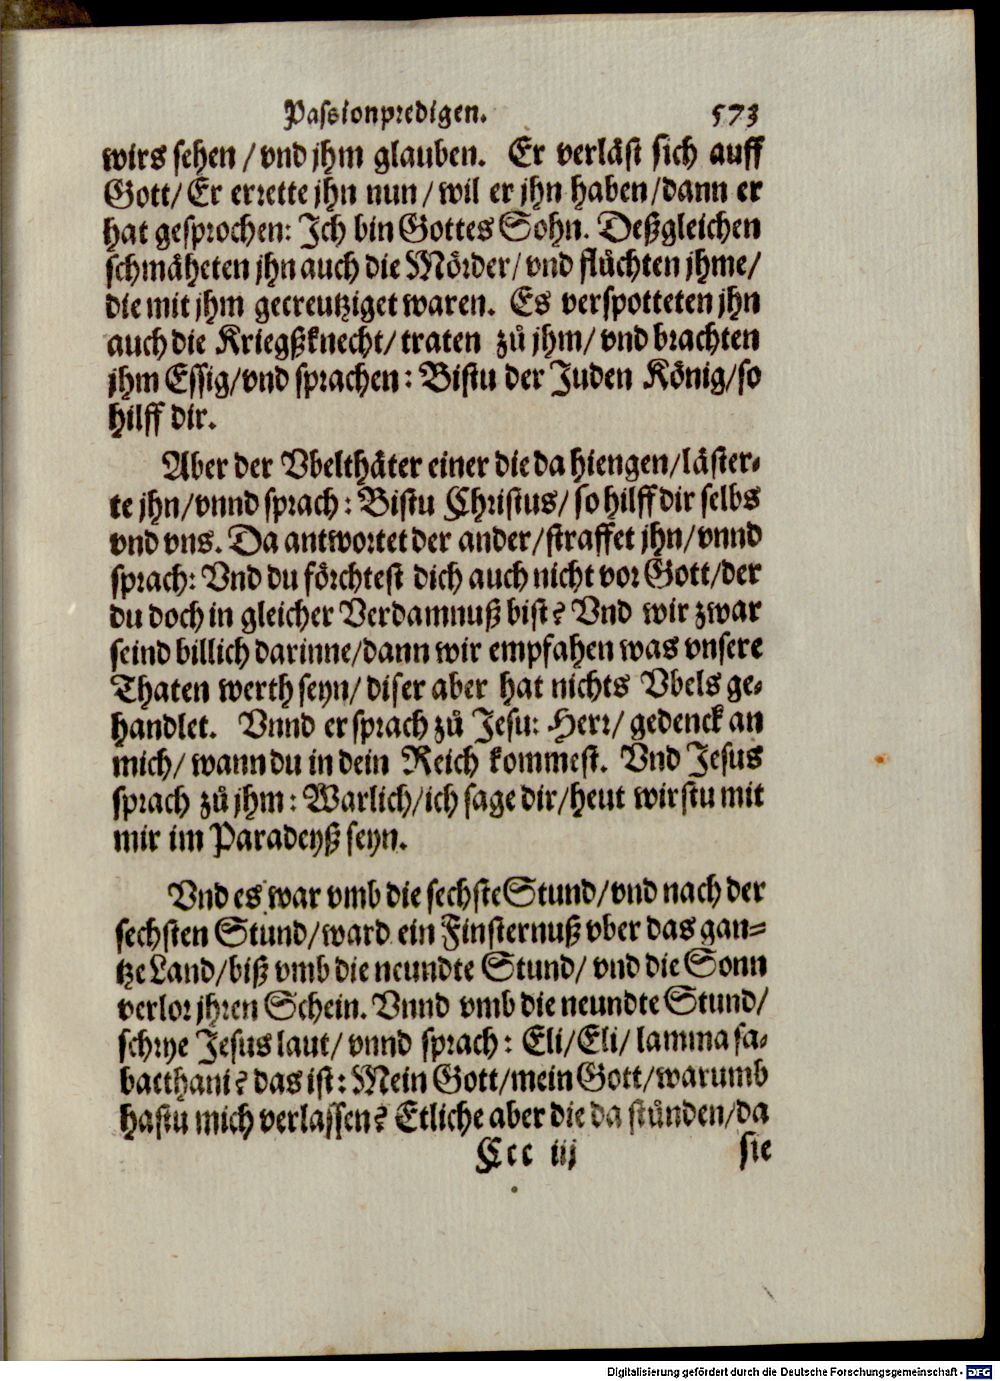 Passionpredigen. 573
wirs sehen / vnd jhm glauben. Er verläst sich auff
Gott / Er errette jhn nun / wil er jhn haben / dann er
hat gesprochen: Ich bin Gottes Sohn. Deßgleichen
schmäheten jhn auch die Mörder / vnd flüchten jhme /
die mit jhm gecreutziget waren. Es verspotteten jhn
auch die Kriegßknecht / traten zů jhm / vnd brachten
jhm Essig / vnd sprachen: Bistu der Juden König / so
hilff dir.
Aber der Vbelthäter einer die da hiengen / läster-
te jhn / vnnd sprach: Bistu Christus / so hilff dir selbs
vnd vns. Da antwortet der ander / straffet jhn / vnnd
sprach: Vnd du förchtest dich auch nicht vor Gott / der
du doch in gleicher Verdamnuß bist? Vnd wir zwar
seind billich darinne / dann wir empfahen was vnsere
Thaten werth seyn / diser aber hat nichts Vbels ge-
handlet. Vnnd er sprach zů Jesu: Herr / gedenck an
mich / wann du in dein Reich kommest. Vnd Jesus
sprach zů jhm: Warlich / ich sage dir / heut wirstu mit
mir im Paradeyß seyn.
Vnd es war vmb die sechste Stund / vnd nach der
sechsten Stund / ward ein Finsternuß vber das gan=
tze Land / biß vmb die neundte Stund / vnd die Sonn
verlor jhren Schein. Vnnd vmb die neundte Stund /
schrye Jesus laut / vnnd sprach: Eli / Eli / lamma sa-
bacthani? das ist: Mein Gott / mein Gott / warumb
hastu mich verlassen? Etliche aber die da stůnden / da
Ccc iij sie
Digitalisierung gefördert durch die Deutsche Forschungsgemeinschaft - DFG